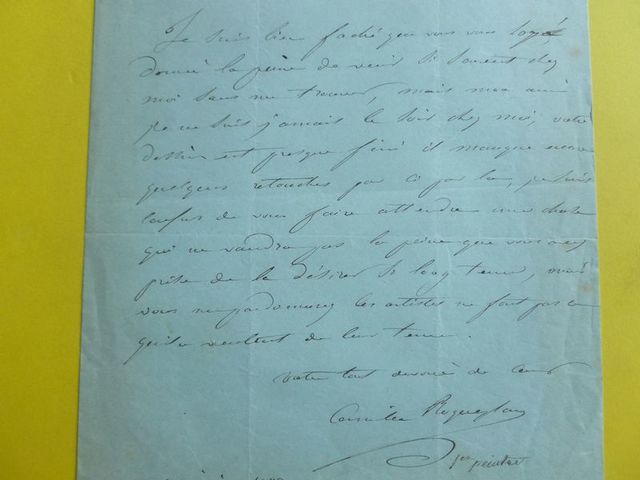 Je suis bien faché que vous vous soyé
donné la peine de venir si souvent chez
moi sans me trouver, mais mon ami
je ne suis jamais le soir chez moi, votre
dessin est presque fini il manque encore
quelques retouches par ci par la, je suis
confus de vous faire attendre une chose
qui ne vaudra pas la peine que vous avez
prise de la désirer si long tems, mais
vous me pardonnerez les artistes ne font pas ce
qu'ils veulent de leur tems.
votre tout dévoué de cœur
Camille Roqueplan
peintre